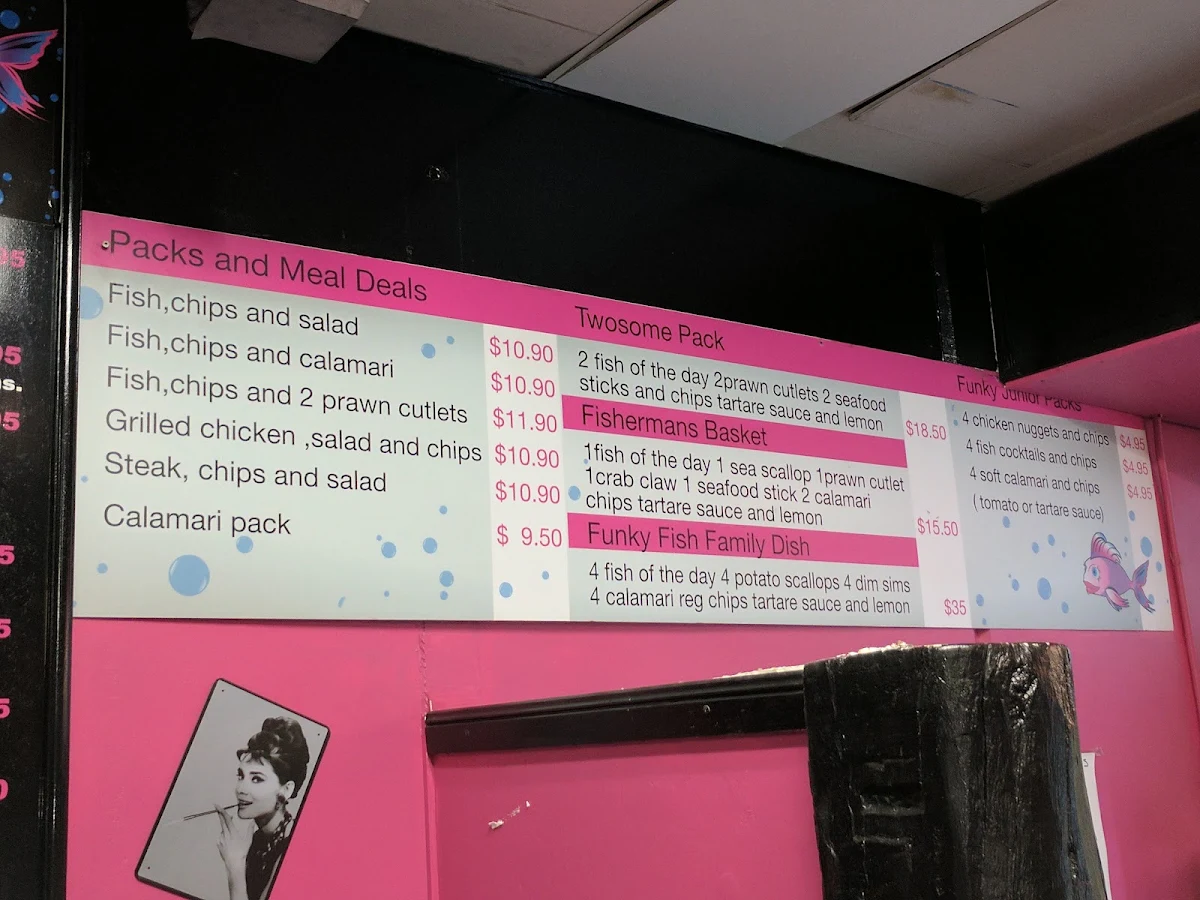 Packs and Meal Deals
Fish,chips and salad
$10.90
Fish,chips and calamari
$10.90
Fish,chips and 2 prawn cutlets
$11.90
Grilled chicken ,salad and chips
$10.90
Steak, chips and salad
$10.90
Calamari pack
$ 9.50
Twosome Pack
2 fish of the day 2prawn cutlets 2 seafood
sticks and chips tartare sauce and lemon
$18.50
Fishermans Basket
1fish of the day 1 sea scallop 1prawn cutlet
1crab claw 1 seafood stick 2 calamari
chips tartare sauce and lemon
$15.50
Funky Fish Family Dish
4 fish of the day 4 potato scallops 4 dim sims
4 calamari reg chips tartare sauce and lemon
$35
Funky Junior Packs
4 chicken nuggets and chips
$4.95
4 fish cocktails and chips
$4.95
4 soft calamari and chips
$4.95
( tomato or tartare sauce)